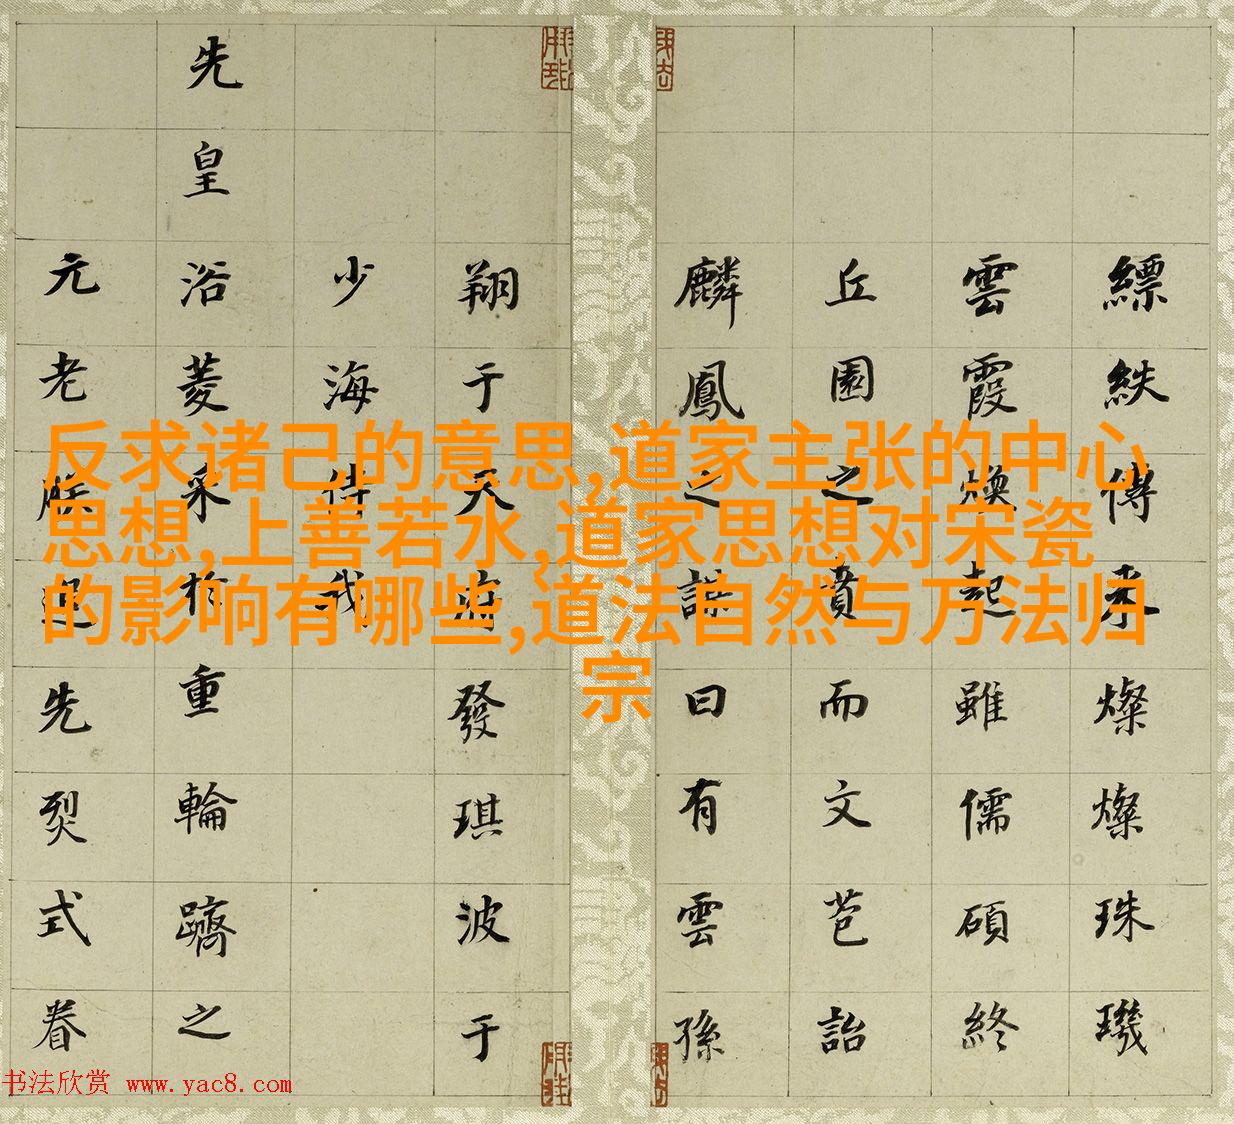 反求诸己的意思,道家主张的中心
思想,上善若水,道家思想对宋瓷
的影响有哪些,道法自然与万法归
宗
縹紩傳来燦燦珠璣
雲霞煥起雖儒碩終
丘園之賁而文芭詒
麟鳳之曰有雲孫
翔于天府發琪波于
少海侍我
先皇浴菱采於重輪躋之
元老先烈式眷
书法欣赏 www.yac8.com